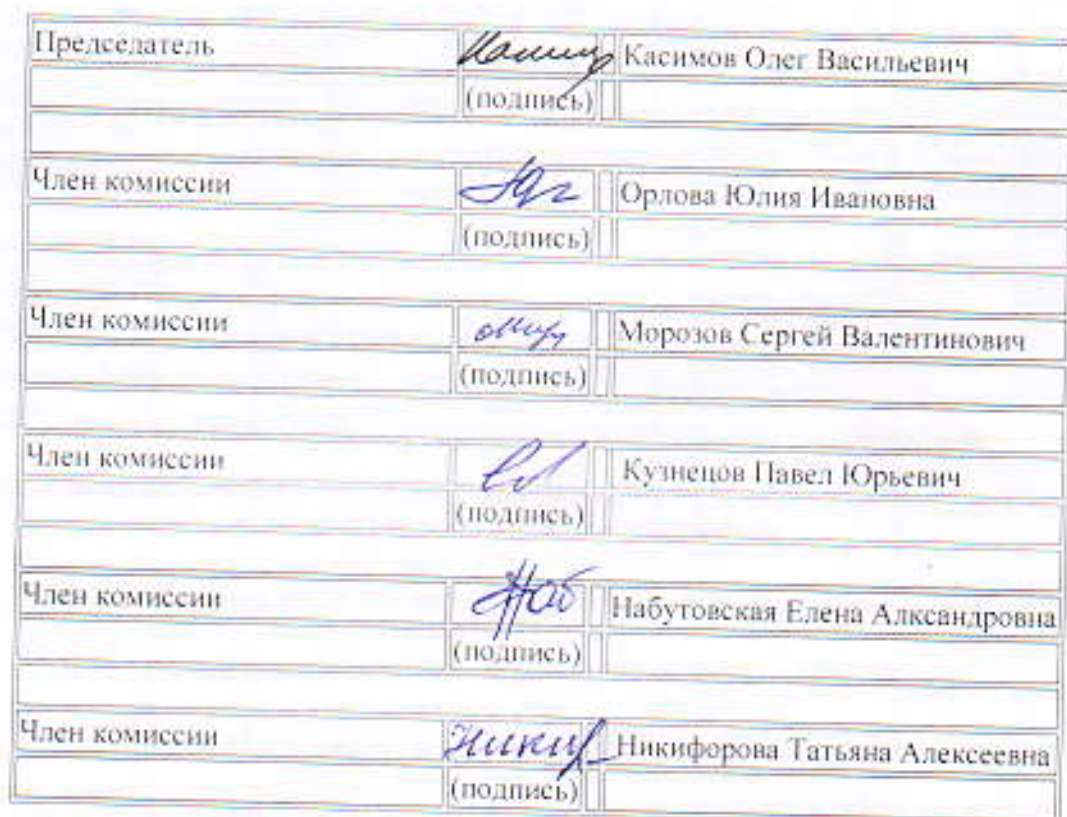 Председатель Касимов Олег Васильевич
(подпись)
Член комиссии Орлова Юлия Ивановна
(подпись)
Член комиссии Морозов Сергей Валентинович
(подпись)
Член комиссии Кузнецов Павел Юрьевич
(подпись)
Член комиссии Набутовская Елена Алксандровна
(подпись)
Член комиссии Никифорова Татьяна Алексеевна
(подпись)